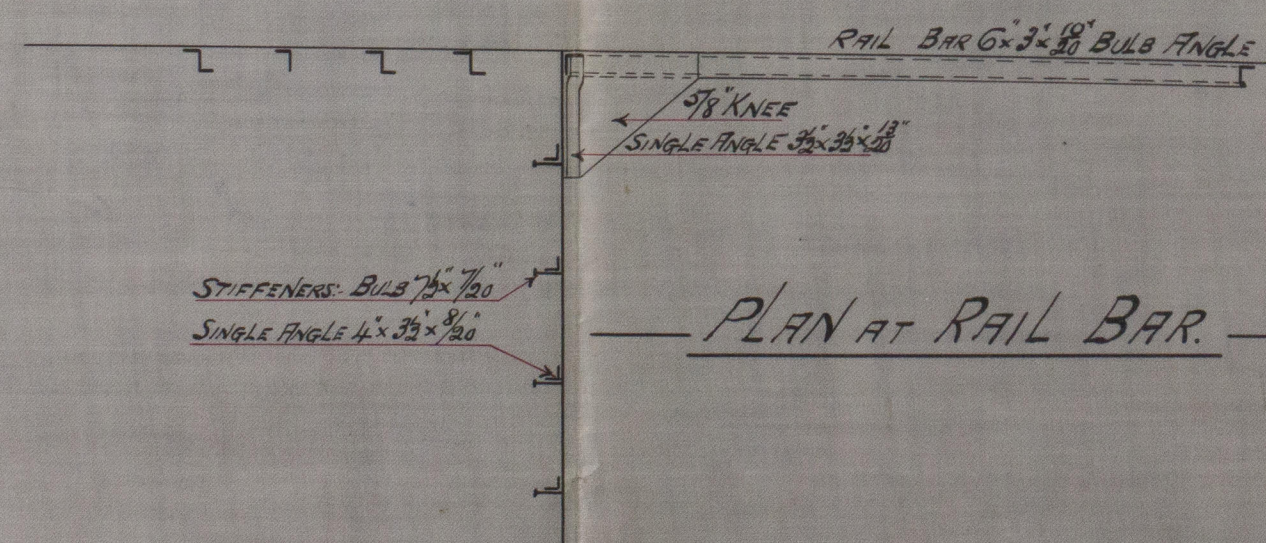 RAIL BAR 6"x 3"x 10/20" BULB ANGLE
5/8" KNEE
SINGLE ANGLE 3½"x 3½"x 13/20"
STIFFENERS:- BULB 7½"x 7/20"
SINGLE ANGLE 4"x 3½"x 8/20"
PLAN AT RAIL BAR.